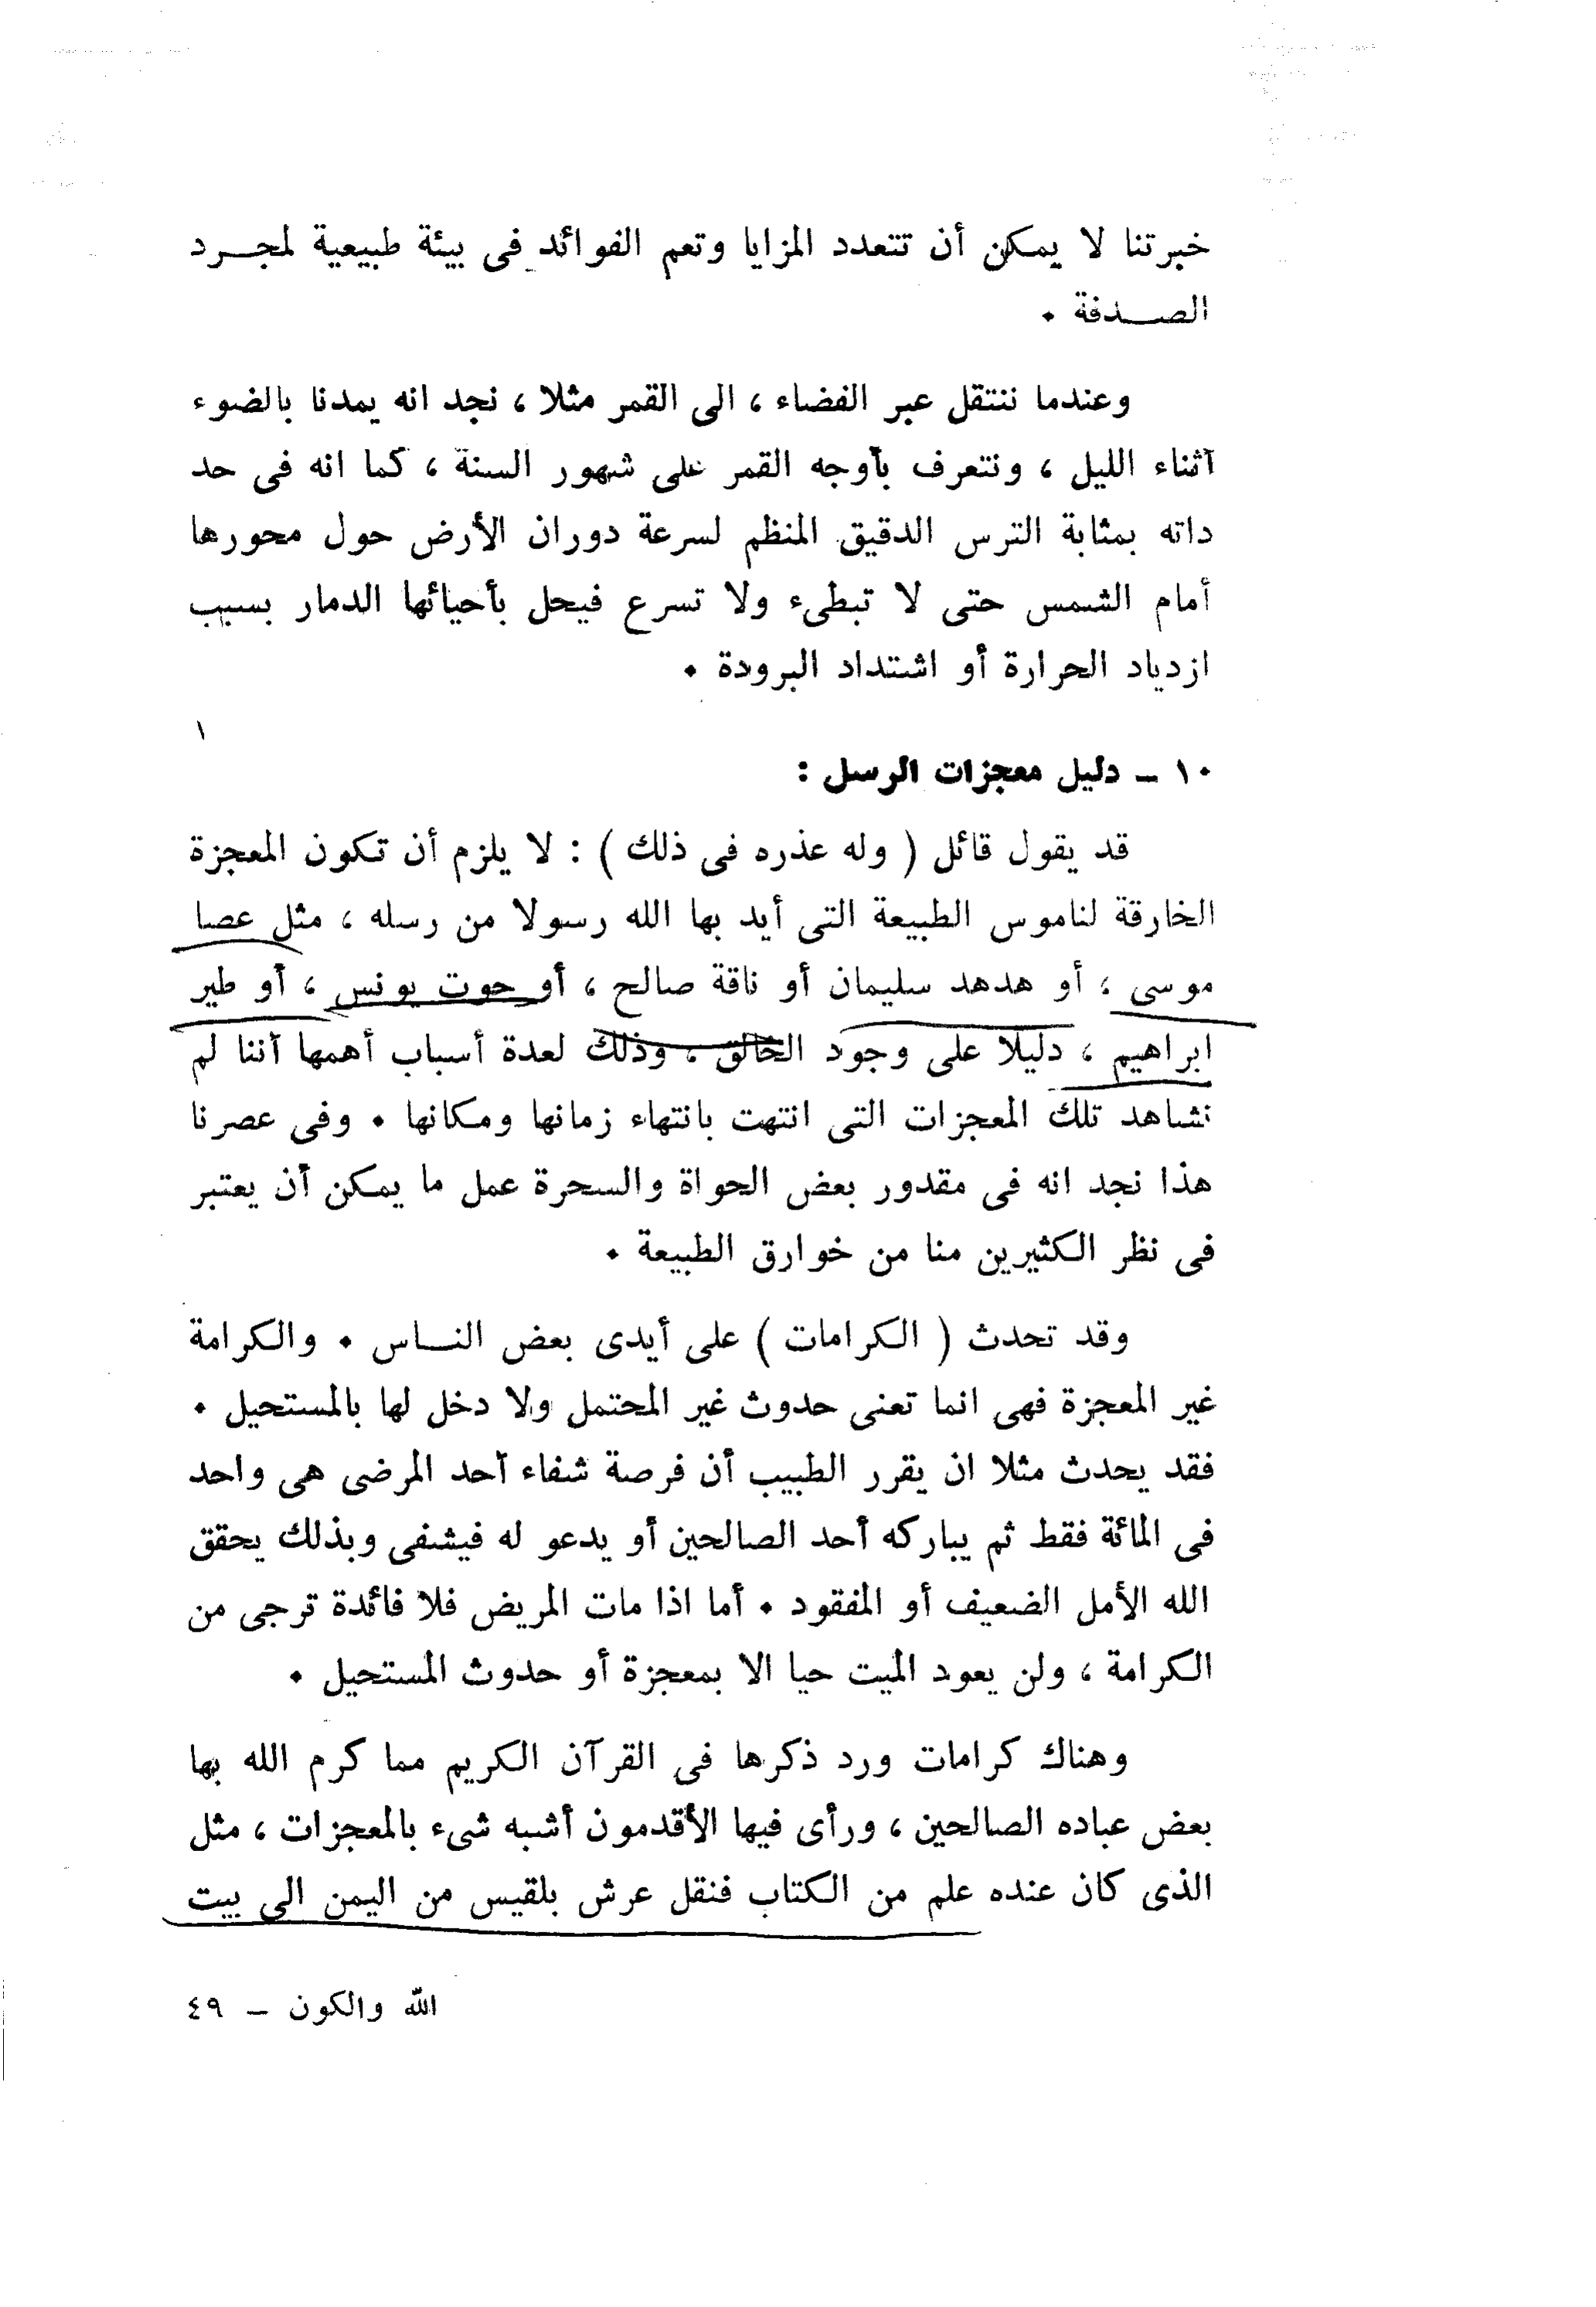 خبرتنا لا يمكن أن تتعدد المزايا وتعم الفوائد فى بيئة طبيعية لمجرد
الصدفة .
وعندما ننتقل عبر الفضاء ، الى القمر مثلا ، نجد انه يمدنا بالضوء
أثناء الليل ، ونتعرف بأوجه القمر على شهور السنة ، كما انه فى حد
ذاته بمثابة الترس الدقيق المنظم لسرعة دوران الأرض حول محورها
أمام الشمس حتى لا تبطىء ولا تسرع فيحل بأحيائها الدمار بسبب
ازدياد الحرارة أو اشتداد البرودة .
١٠ ـ دليل معجزات الرسل :
قد يقول قائل ( وله عذره فى ذلك ) : لا يلزم أن تكون المعجزة
الخارقة لناموس الطبيعة التى أيد بها الله رسولا من رسله ، مثل عصا
موسى ، أو هدهد سليمان أو ناقة صالح ، أو حوت يونس ، أو طير
ابراهيم ، دليلا على وجود الخالق ، وذلك لعدة أسباب أهمها أننا لم
نشاهد تلك المعجزات التى انتهت بانتهاء زمانها ومكانها . وفى عصرنا
هذا نجد انه فى مقدور بعض الحواة والسحرة عمل ما يمكن أن يعتبر
فى نظر الكثيرين منا من خوارق الطبيعة .
وقد تحدث ( الكرامات ) على أيدى بعض الناس . والكرامة
غير المعجزة فهى انما تعنى حدوث غير المحتمل ولا دخل لها بالمستحيل .
فقد يحدث مثلا ان يقرر الطبيب أن فرصة شفاء أحد المرضى هى واحد
فى المائة فقط ثم يباركه أحد الصالحين أو يدعو له فيشفى وبذلك يحقق
الله الأمل الضعيف أو المفقود . أما اذا مات المريض فلا فائدة ترجى من
الكرامة ، ولن يعود الميت حيا الا بمعجزة أو حدوث المستحيل .
وهناك كرامات ورد ذكرها فى القرآن الكريم مما كرم الله بها
بعض عباده الصالحين ، ورأى فيها الأقدمون أشبه شىء بالمعجزات ، مثل
الذى كان عنده علم من الكتاب فنقل عرش بلقيس من اليمن الى بيت
الله والكون ـ ٤٩